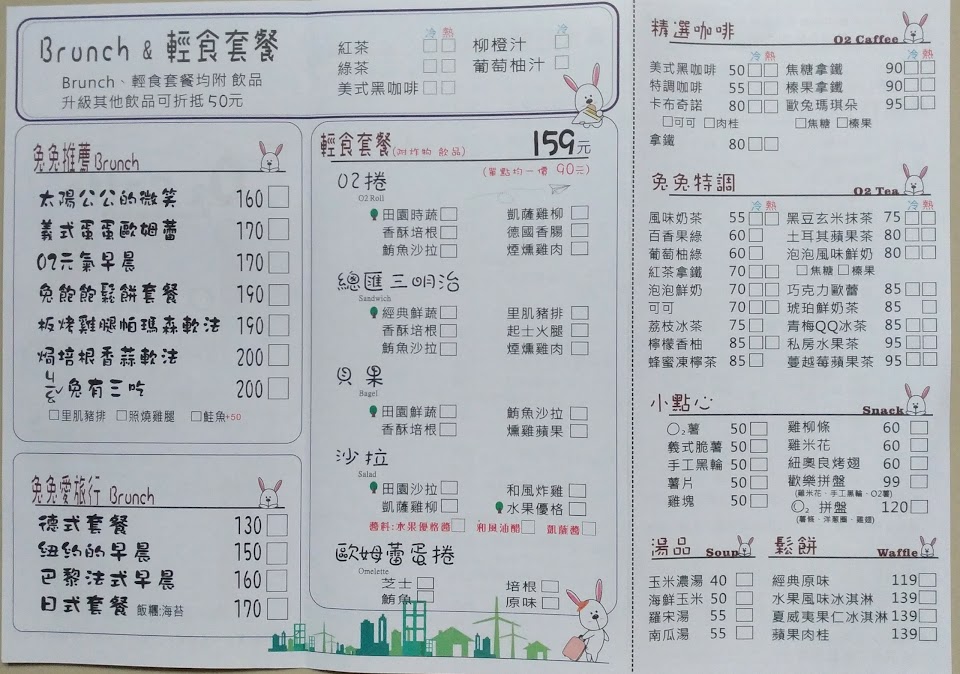 Brunch & 輕食套餐
Brunch、輕食套餐均附 飲品
升級其他飲品可折抵50元
冷 熱
紅茶
綠茶
美式黑咖啡
冷
柳橙汁
葡萄柚汁
兔兔推薦Brunch
太陽公公的微笑 160
義式蛋蛋歐姆蕾 170
O2元氣早晨 170
兔飽飽鬆餅套餐 190
板烤雞腿帕瑪森軟法 190
焗培根香蒜軟法 200
兔有三吃 200
里肌豬排 照燒雞腿 鮭魚+50
兔兔愛旅行 Brunch
德式套餐 130
紐約的早晨 150
巴黎法式早晨 160
日式套餐 飯糰:海苔 170
輕食套餐(附炸物 飲品) 159元
(單點均一價 90元)
O2捲
O2 Roll
田園時蔬 凱薩雞柳
香酥培根 德國香腸
鮪魚沙拉 煙燻雞肉
總匯三明治
Sandwich
經典鮮蔬 里肌豬排
香酥培根 起士火腿
鮪魚沙拉 煙燻雞肉
貝果
Bagel
田園鮮蔬 鮪魚沙拉
香酥培根 燻雞蘋果
沙拉
Salad
田園沙拉 和風炸雞
凱薩雞柳 水果優格
醬料:水果優格醬 和風油醋 凱薩醬
歐姆蕾蛋捲
Omelette
芝士 培根
鮪魚 原味
精選咖啡 O2 Caffee
冷 熱 冷 熱
美式黑咖啡 50 焦糖拿鐵 90
特調咖啡 55 榛果拿鐵 90
卡布奇諾 80 歐兔瑪琪朵 95
可可 肉桂 焦糖 榛果
拿鐵 80
兔兔特調 O2 Tea
冷 熱 冷 熱
風味奶茶 55 黑豆玄米抹茶 75
百香果綠 60 土耳其蘋果茶 80
葡萄柚綠 60 泡泡風味鮮奶 80
紅茶拿鐵 70 焦糖 榛果
泡泡鮮奶 70 巧克力歐蕾 85
可可 70 琥珀鮮奶茶 85
荔枝冰茶 75 青梅QQ冰茶 85
檸檬香柚 85 私房水果茶 95
蜂蜜凍檸茶 85 蔓越莓蘋果茶 95
小點心 Snack
O₂薯 50 雞柳條 60
義式脆薯 50 雞米花 60
手工黑輪 50 紐奧良烤翅 60
薯片 50 歡樂拼盤 99
(雞米花、手工黑輪、O2薯)
雞塊 50 O₂ 拼盤 120
(薯條、洋蔥圈、雞翅)
湯品 Soup
玉米濃湯 40
海鮮玉米 50
羅宋湯 55
南瓜湯 55
鬆餅 Waffle
經典原味 119
水果風味冰淇淋 139
夏威夷果仁冰淇淋 139
蘋果肉桂 139